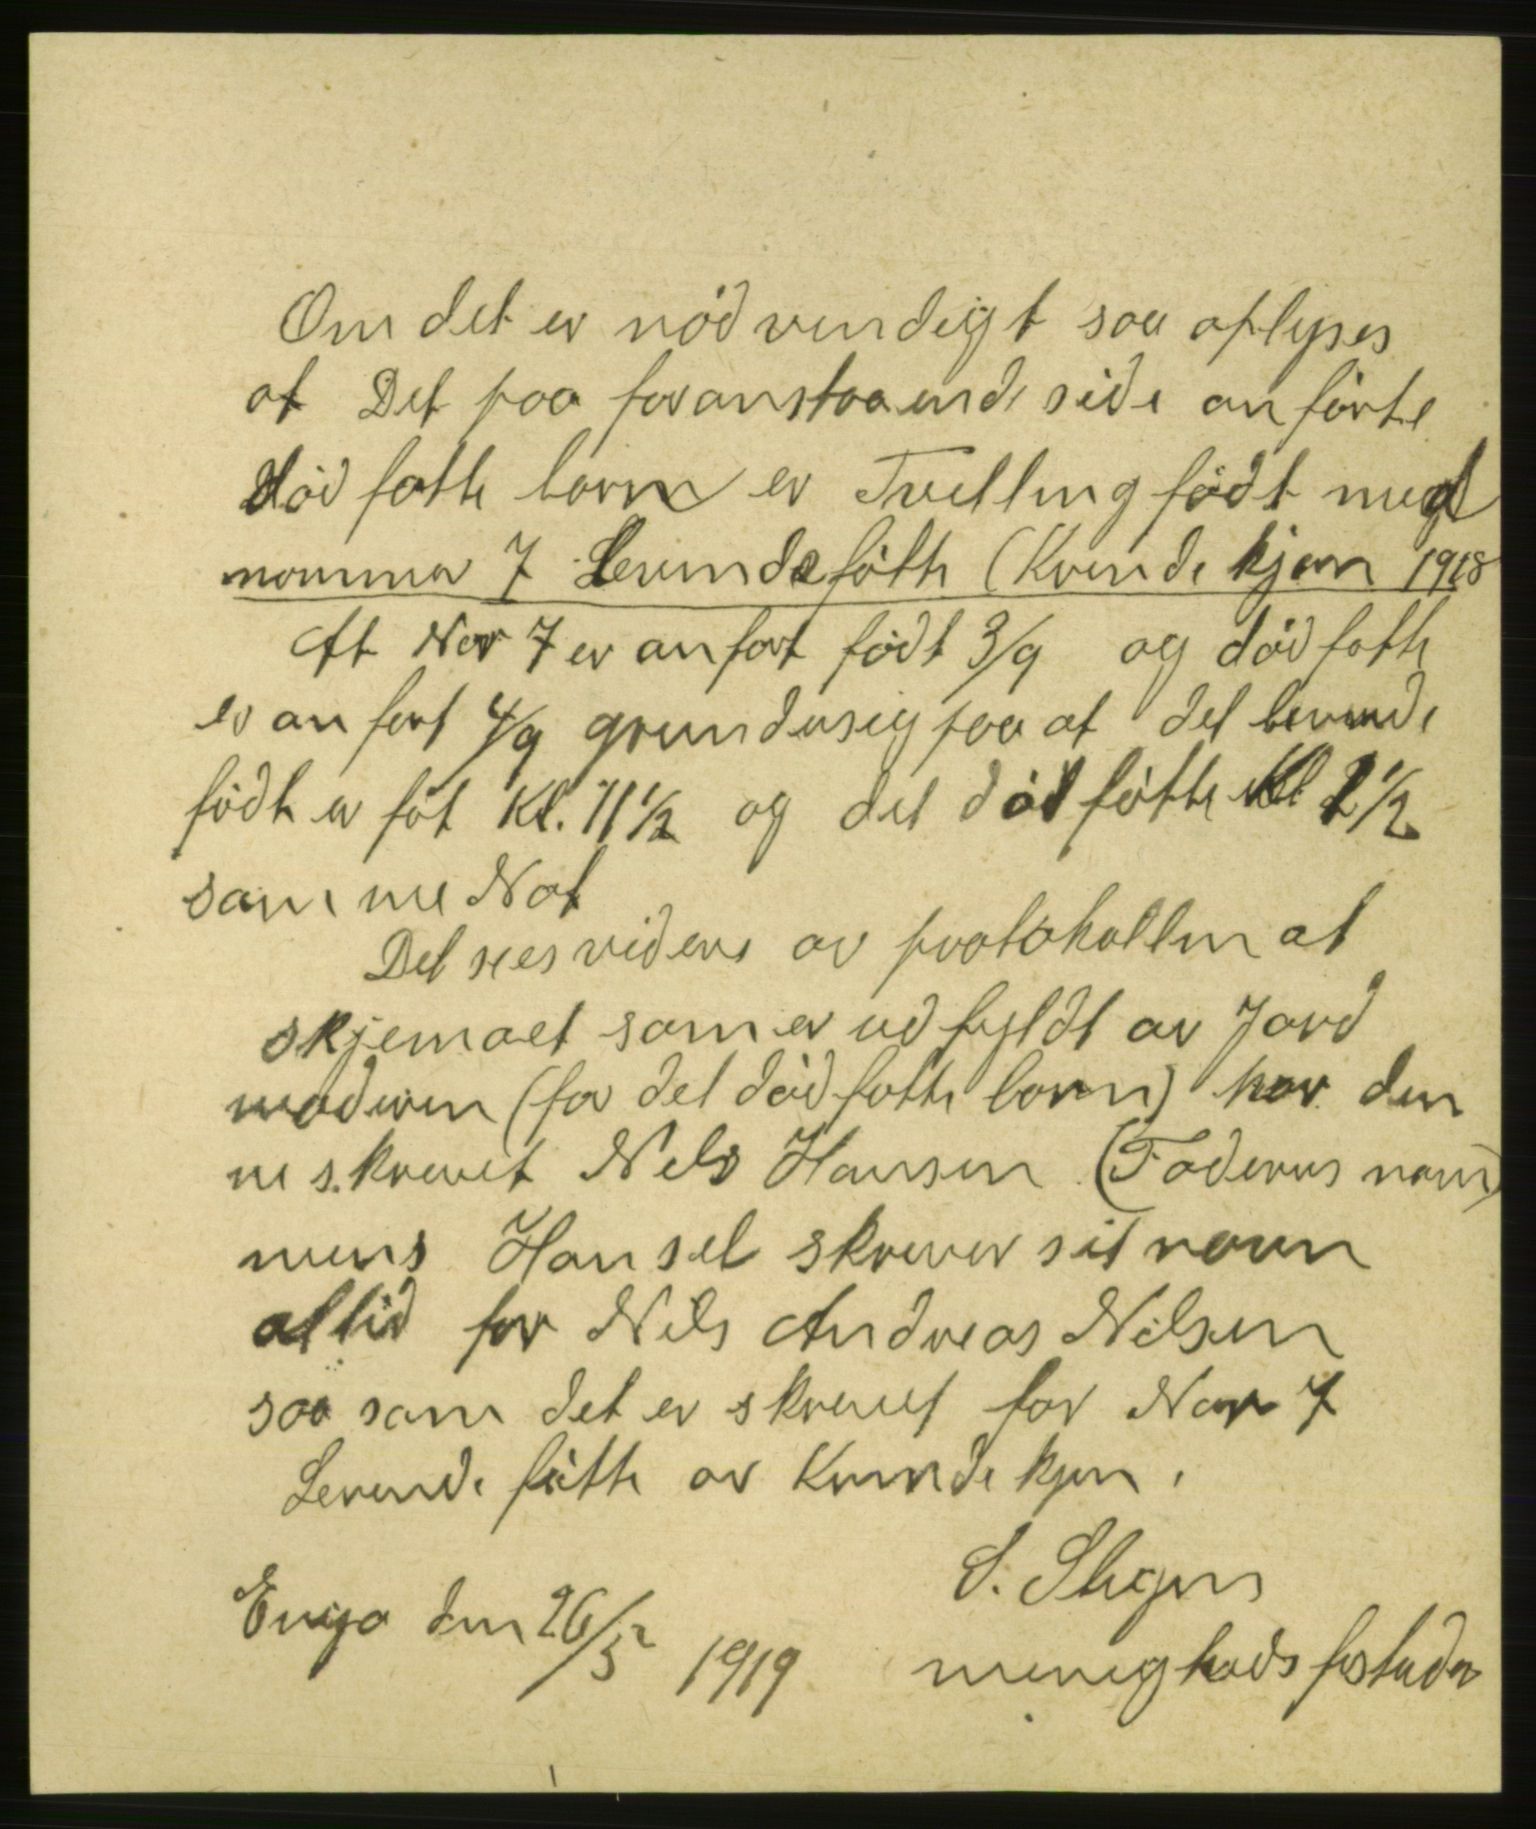 Om det er nödvendigt saa oplyses
at Det paa foranstaaende side anförte
död fötte barn er Tvilling födt med
nommer 7 Levendefötte (Kvinde kjøn 1918
At Nor 7 er anført födt 3/9 og död føtte
er anført 4/9 grunder sig paa at det levende
födte er föt Kl. 11 1/2 og det död fötte Kl 2 1/2
samme Nat
Det sees videre av protokollen at
skjemaet som er udfyldt av Jord
moderen (for det död føtte barn) har den
ne skrevet Nels Hansen (Faderens navn)
mens Han sel skrever sit navn
altid for Nils Andreas Nilsen
saa som det er skrevet for Nor 7
Levende fötte av Kvinde kjøn.
S.
den 26/5 1919 menigheds forstader